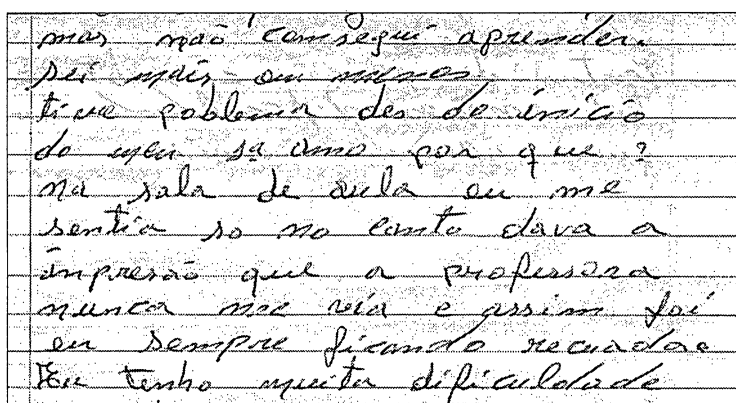 mas não consegui aprender.
sei mais ou menos
tive poblema des do início
do meu 1ª ano por que ?
na sala de aula eu me
sentia so no canto dava a
impresão que a professora
nunca me via e assim foi
eu sempre ficando recuada.
Eu tenho muita dificuldade